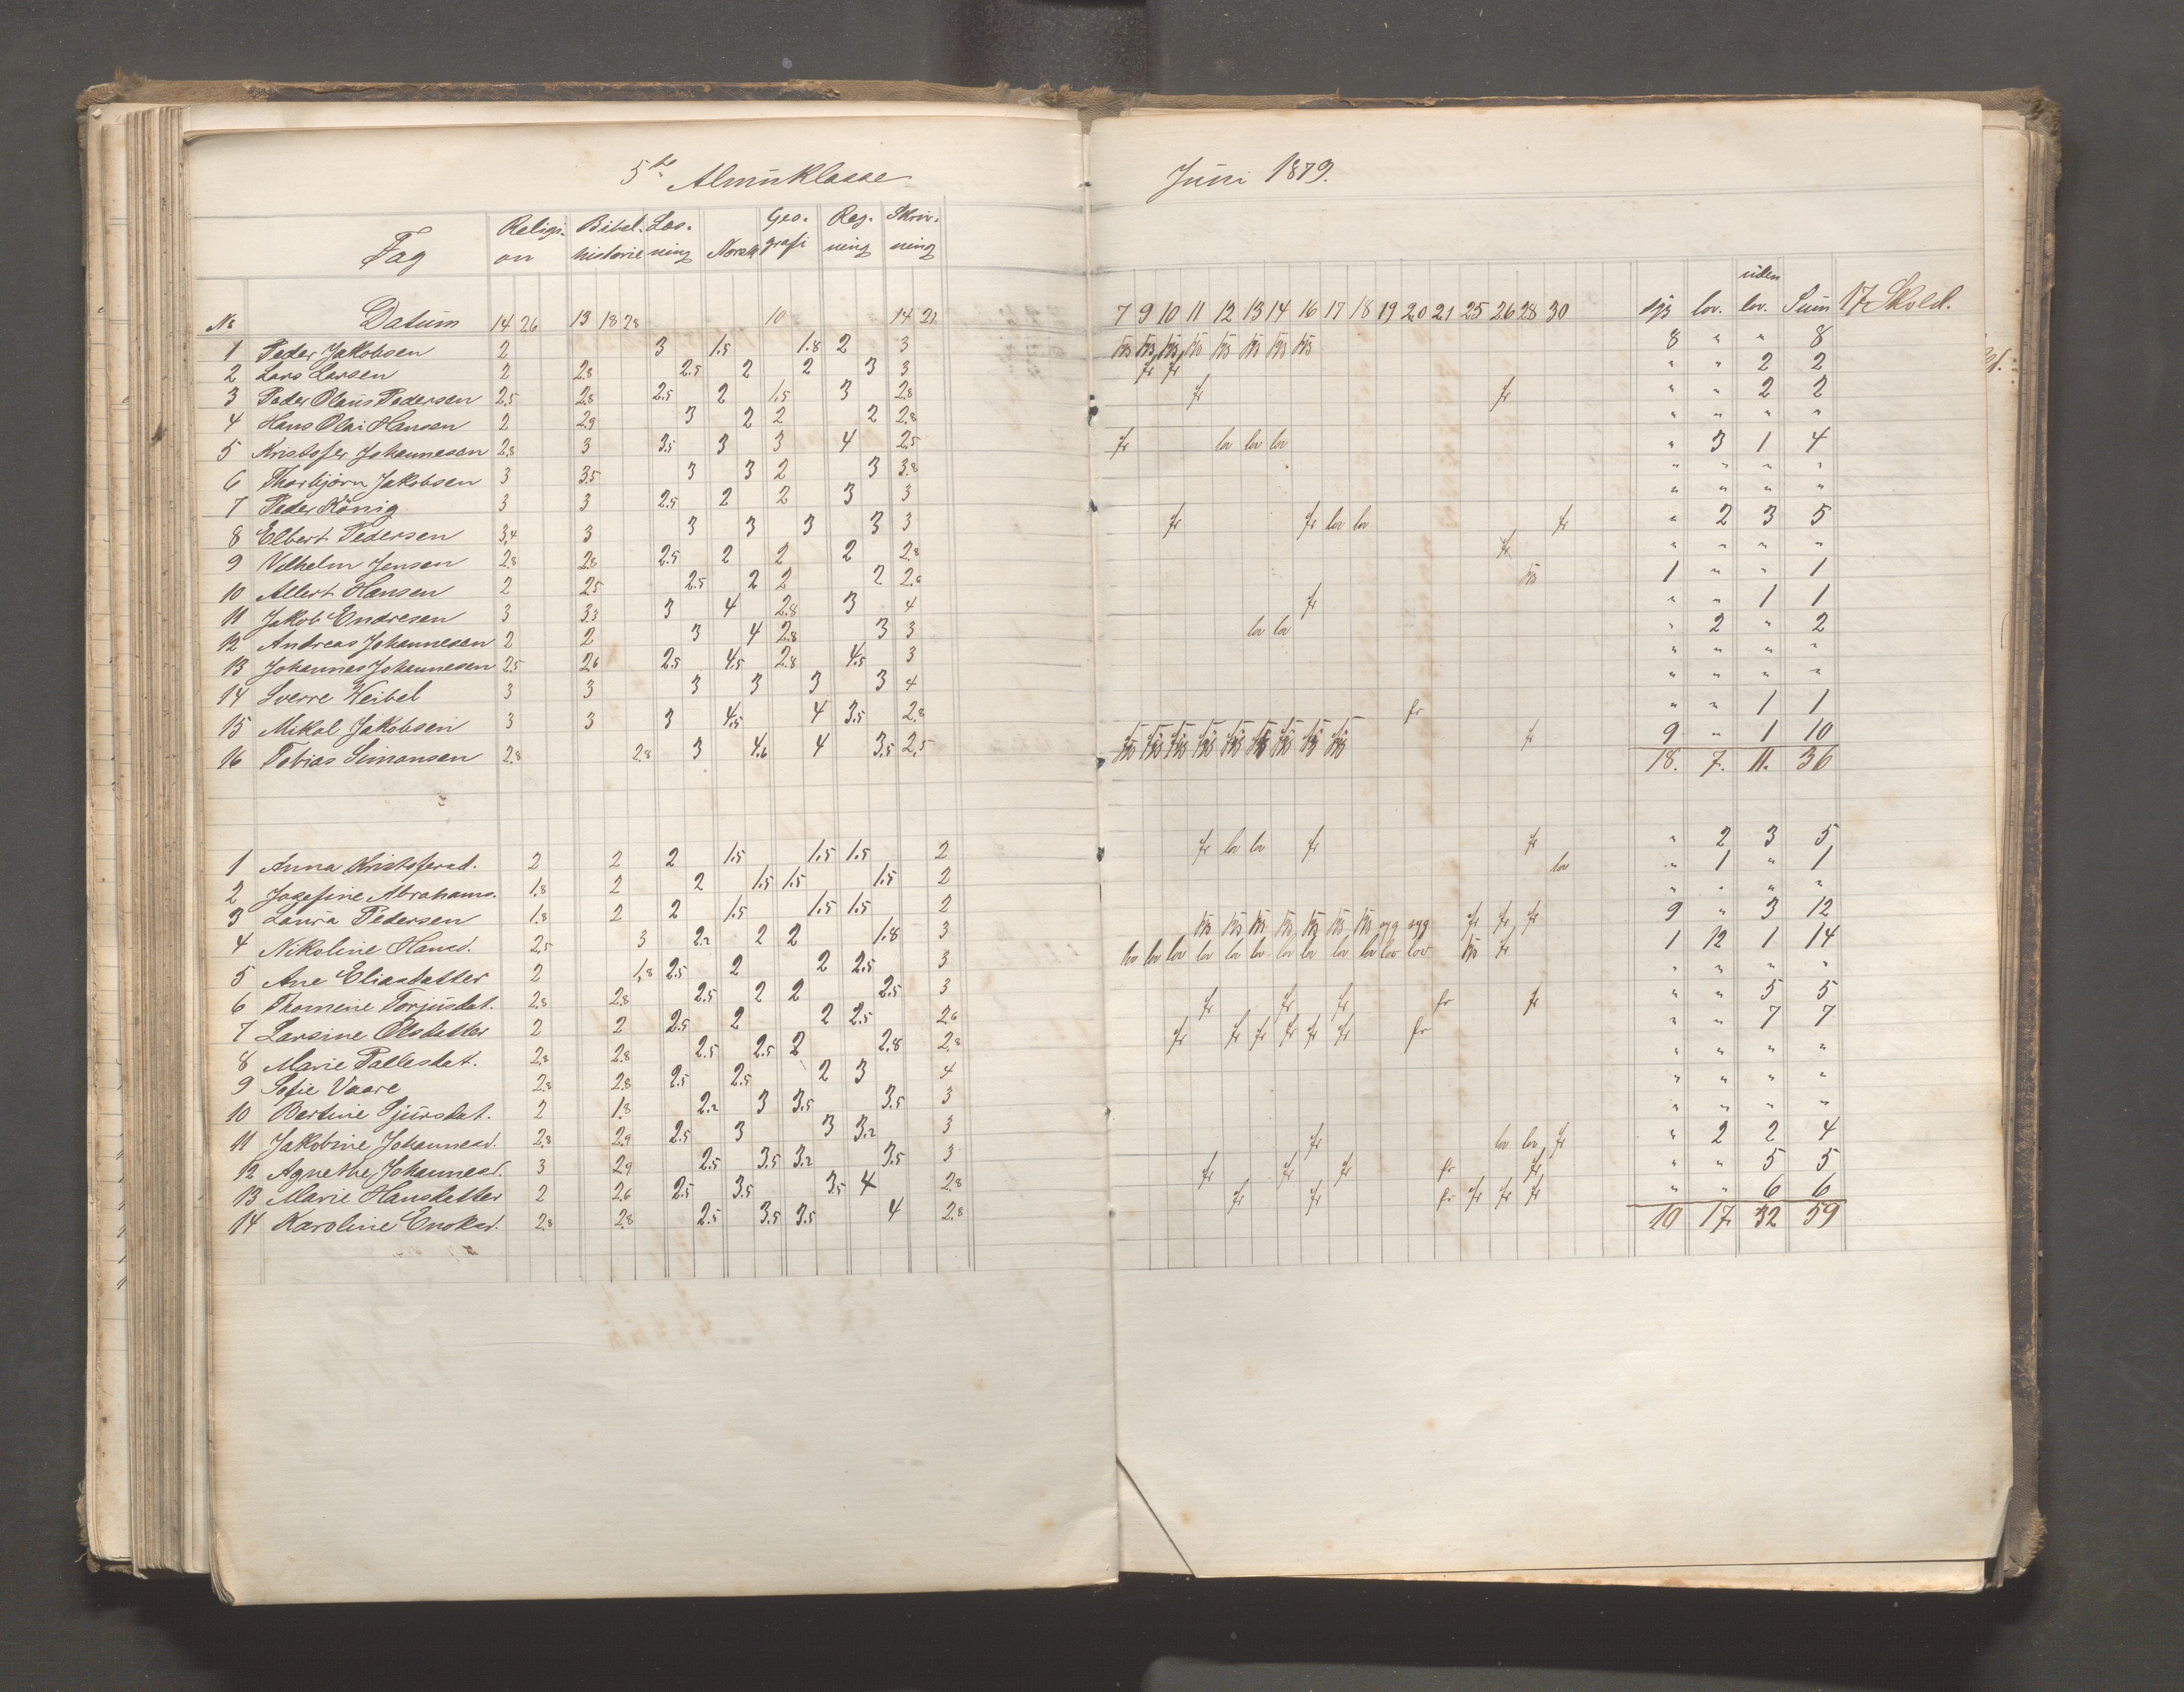 5te Almüklasse
Religi- Bibel- Læs- Geo- Reg- Skriv-
Fag on historie ning Norsk grafi ning ning
No Datum 14 26 13 18 28 10 14 21
1 Peder Jakobsen 2 3 1.5 1.8 2 3
2 Lars Larsen 2 2.8 2.5 2 2 3 3
3 Peder Olaus Pedersen 2.5 2.8 2.5 2 1.5 3 2.8
4 Hans Olai Hansen 2 2.9 3 2 2 2 2.8
5 Kristofer Johannesen 2.8 3 3.5 3 3 4 2.5
6 Thorbjörn Jakobsen 3 3.5 3 3 2 3 3.8
7 Peder König 3 3 2.5 2 2 3 3
8 Elbert Pedersen 3.4 3 3 3 3 3 3
9 Vilhelm Jensen 2.8 2.8 2.5 2 2 2 2.8
10 Albert Hansen 2 2.5 2.5 2 2 2 2.6
11 Jakob Endresen 3 3.3 3 4 2.8 3 4
12 Andreas Johannesen 2 2 3 4 2.8 3 3
13 Johannes Johannesen 2.5 2.6 2.5 4.5 2.8 4.5 3
14 Sverre Weibel 3 3 3 3 3 3 4
15 Mikal Jakobsen 3 3 3 4.5 4 3.5 2.8
16 Tobias Simonsen 2.8 2.8 3 4.6 4 3.5 2.5
1 Anna Kristofersd. 2 2 2 1.5 1.5 1.5 2
2 Josefine Abrahams. 1.8 2 2 1.5 1.5 1.5 2
3 Laura Pedersen 1.8 2 2 1.5 1.5 1.5 2
4 Nikoline Hansd. 2.5 3 2.2 2 2 1.8 3
5 Ane Eliasdatter 2 1.8 2.5 2 2 2.5 3
6 Thomine Torjusdat. 2.8 2.8 2.5 2 2 2.5 3
7 Larsine Olsdatter 2 2 2.5 2 2 2.5 2.6
8 Marie Pallesdat. 2.8 2.8 2.5 2.5 2 2.8 2.8
9 Sofie Vaare 2.8 2.8 2.5 2.5 2 3 4
10 Bertine Sjursdat. 2 1.8 2.2 3 3.5 3.5 3
11 Jakobine Johannesd. 2.8 2.9 2.5 3 3 3.2 3
12 Agnethe Johannesd. 3 2.9 2.5 3.5 3.2 3.5 3
13 Marie Hansdatter 2 2.6 2.5 3.5 3.5 4 2.8
14 Karoline Enoksd. 2.8 2.8 2.5 3.5 3.5 4 2.8
Juni 1879.
uden
7 9 10 11 12 13 14 16 17 18 19 20 21 25 26 28 30 syg lov. lov. Sum 17 Skold.
8 " " 8
fr fr " " 2 2
fr fr " " 2 2
" " " "
fr lov lov lov " 3 1 4
" " " "
" " " "
fr fr lov lov fr " 2 3 5
fr " " " "
1 " " 1
fr " " 1 1
lov lov " 2 " 2
" " " "
" " " "
fr " " 1 1
fr 9 " 1 10
18. 7. 11. 36
fr lov lov fr fr " 2 3 5
lov " 1 " 1
" " " "
syg syg fr fr fr 9 " 3 12
lov lov lov lov lov lov lov lov lov lov lov lov fr 1 12 1 14
" " " "
fr fr fr fr fr " " 5 5
fr fr fr fr fr fr fr " " 7 7
" " " "
" " " "
" " " "
fr lov lov fr " 2 2 4
fr fr fr fr fr " " 5 5
fr fr fr fr fr fr " " 6 6
10 17 32 59
31.